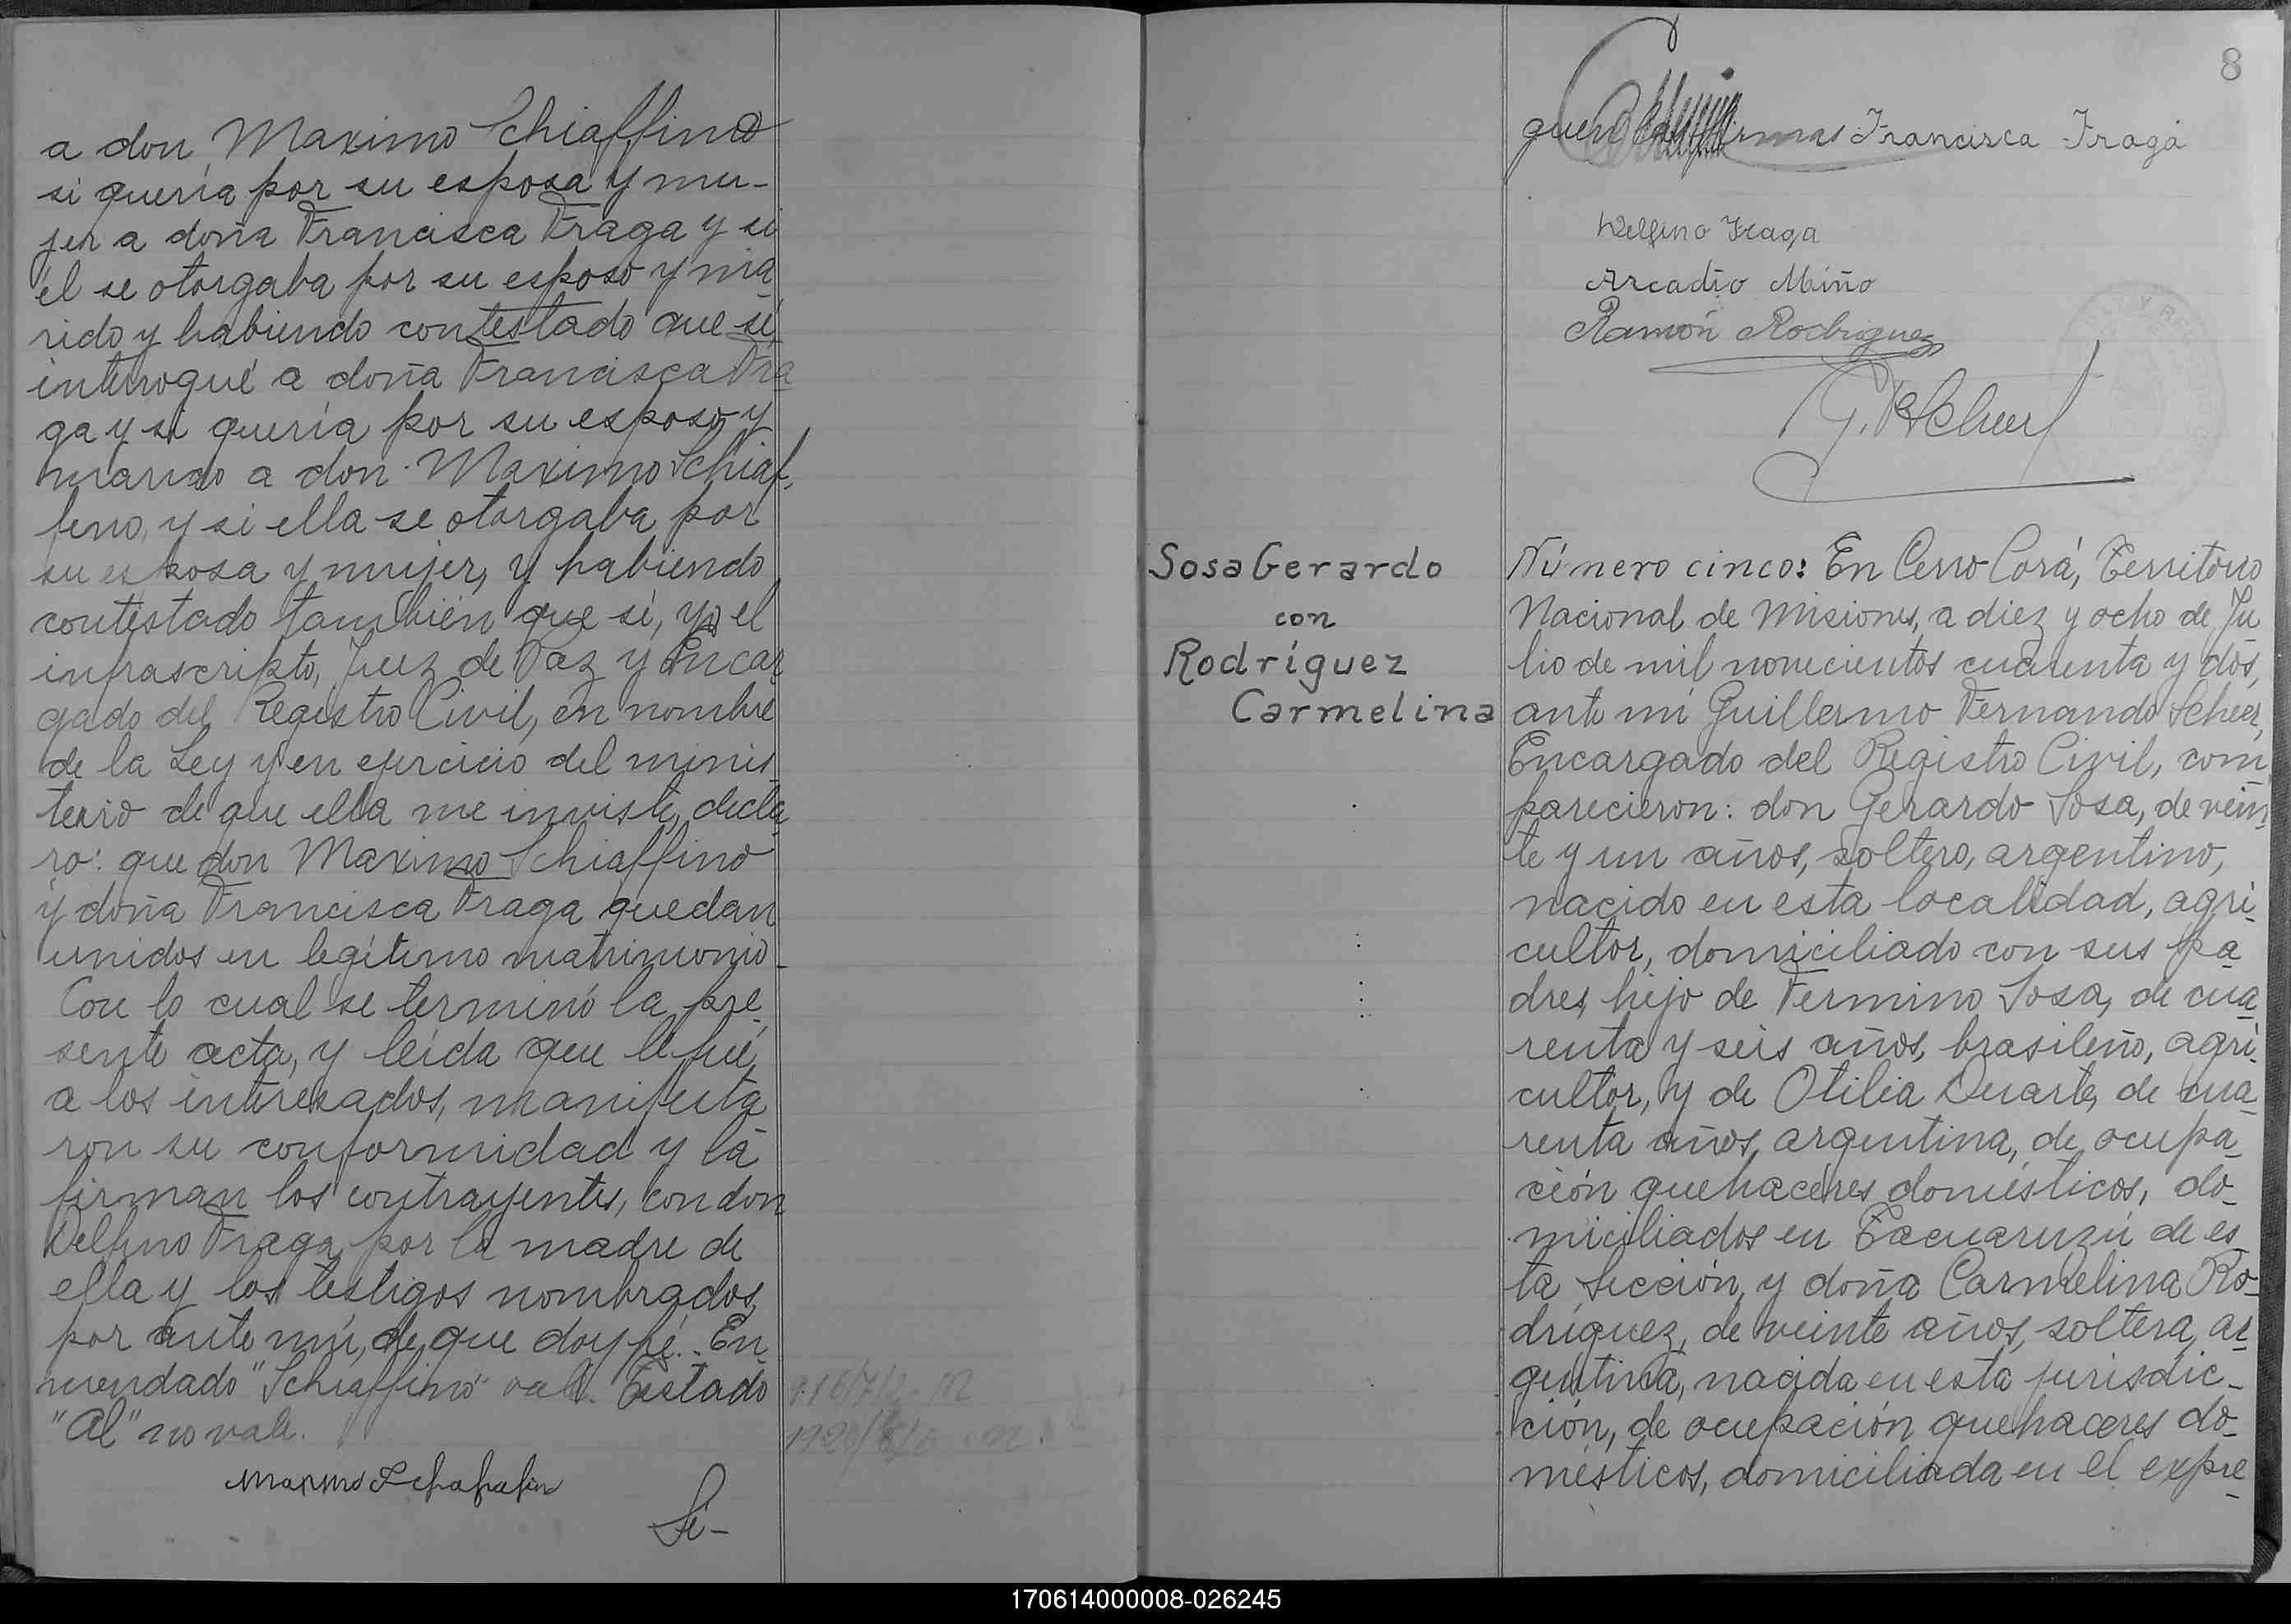 a don Maximo Schiaffino
si quería por su esposa y mu-
jer a doña Francisca Fraga y si
él se otorgaba por su esposo y ma
rido y habiendo contestado que sí,
interrogué a doña Francisca Fra
ga y si quería por su esposo y
marido a don Maximo Schiaf,
fino, y si ella se otorgaba por
su esposa y mujer, y habiendo
contestado también que sí, yo el
infrascripto, Juez de Paz y Encar
gado del Registro Civil, en nombre
de la Ley y en ejercicio del minis
terio de que ella me inviste, decla
ro: que don Maximo Schiaffino
y doña Francisca Fraga quedan
unidos en legítimo matrimonio_
Con lo cual se terminó la pre_
sente acta, y leída que le fué,
a los interesados, manifesta
ron su conformidad y la
firman los contrayentes, con don
Delfino Fraga por la madre de
ella y los testigos nombrados,
por ante mí, de que doy fé.. En_
mendado "Schiaffino" vale. Testado
"Al" no vale.
Si-
8
guen las firmas Francisca Fraga
Delfino Fraga
Arcadio Miño
Ramón Rodriguez
G. F. Scheer
Sosa Gerardo
con
Rodríguez
Carmelina
Número cinco: En Cerro Corá, Territorio
Nacional de Misiones, a diez y ocho de Ju
lio de mil novecientos cuarenta y dos,
ante mí Guillermo Fernando Scheer,
Encargado del Registro Civil, com_
parecieron: don Gerardo Sosa, de vein_
te y un años, soltero, argentino,
nacido en esta localidad, agri_
cultor, domiciliado con sus pa_
dres, hijo de Fermino Sosa, de cua_
renta y seis años, brasileño, agri_
cultor, y de Otilia Duarte, de cua_
renta años, argentina, de ocupa_
ción quehaceres domésticos, do_
miciliados en Tacuaruzú de es_
ta Sección, y doña Carmelina Ro_
dríguez, de veinte años, soltera, ar_
gentina, nacida en esta jurisdic_
ción, de ocupación quehaceres do_
mésticos, domiciliada en el expre_
170614000008-026245